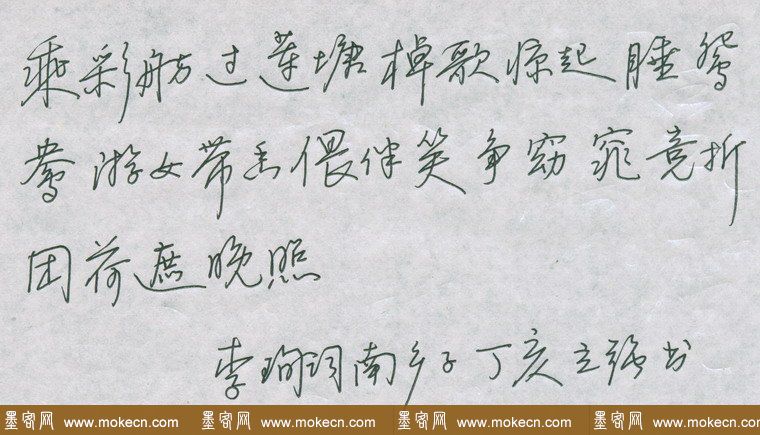 乘彩舫过莲塘棹歌惊起睡鸳
鸯游女带香偎伴笑争窈窕竞折
团荷遮晚照
李珣词南乡子丁亥立强书
墨客网 www.mokecn.com 墨客网 www.mokecn.com 墨客网 www.mokecn.com 墨客网 www.mokecn.com